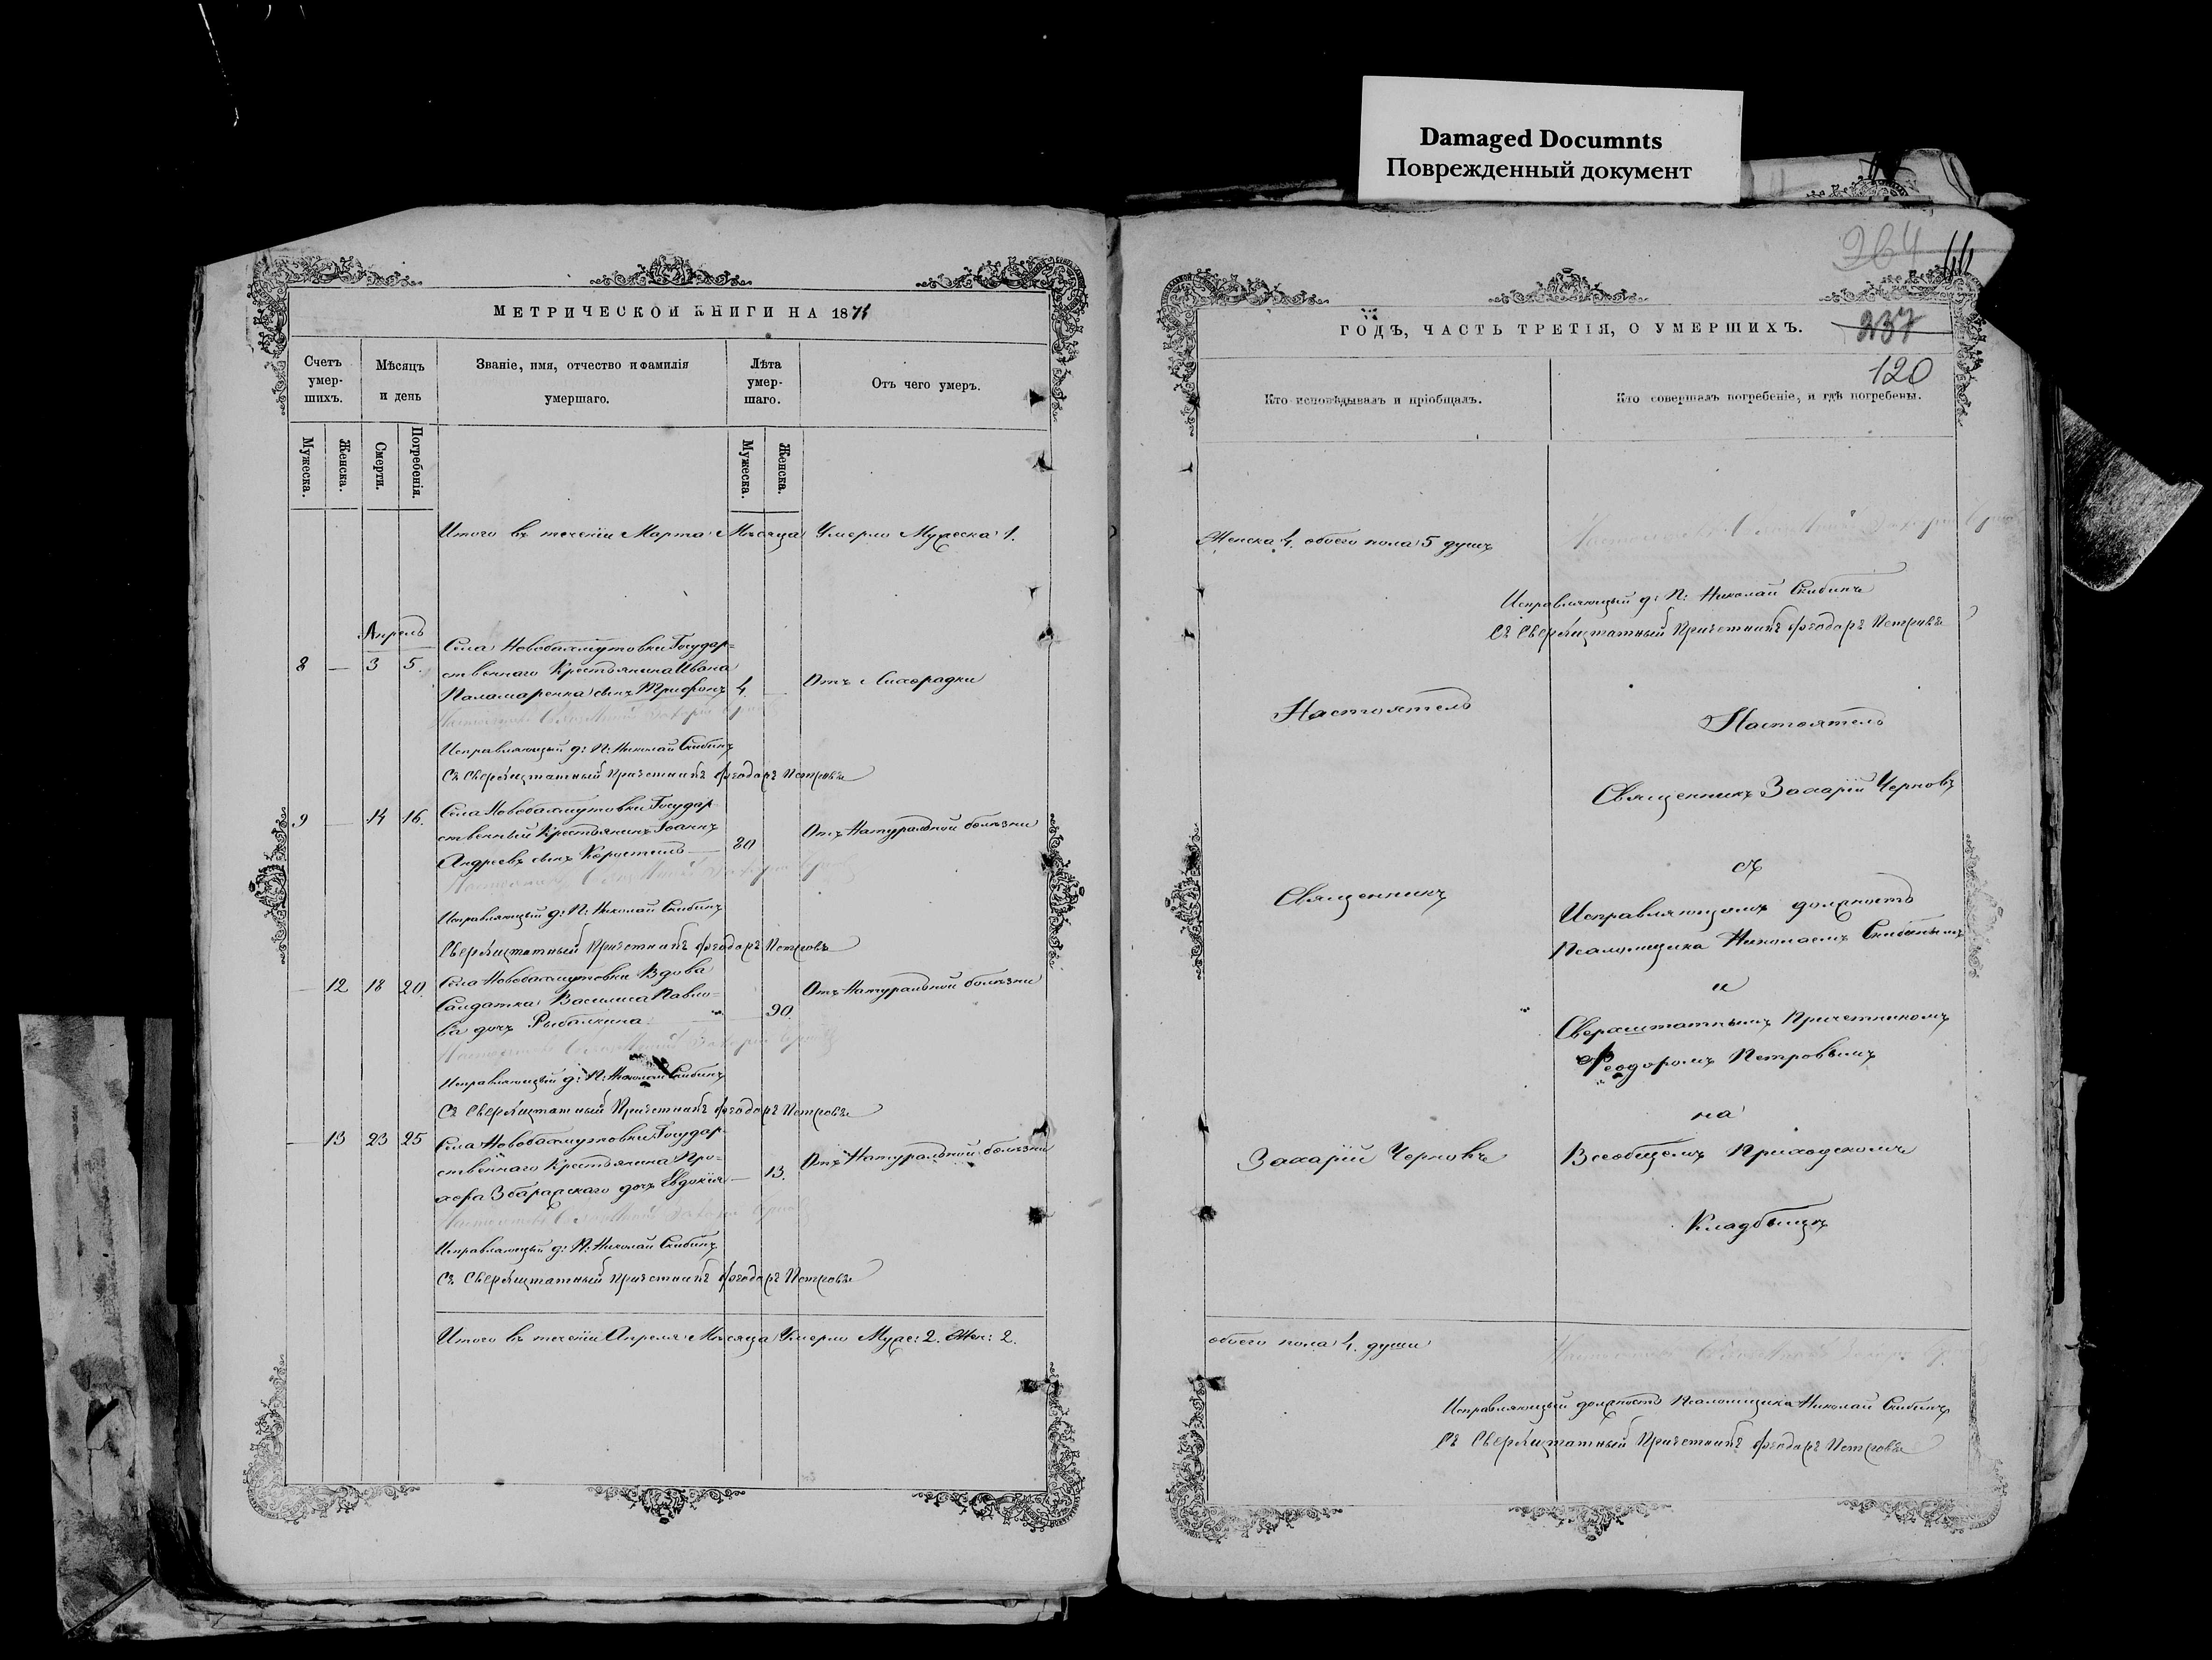 Damaged Documnts
Поврежденный документ
264
44
МЕТРИЧЕСКОЙ КНИГИ НА 1875
Счетъ умер- шихъ.
Мѣсяцъ и день
Званіе, имя, отчество и фамилія умершаго.
Лѣта умер- шаго.
Отъ чего умеръ.
Мужеска.
Женска.
Смерти.
Погребенія.
Мужеска.
Женска.
Итого въ теченіи Марта Мѣсяца Умерло Мужеска 1.
Апрель
8 — 3 5. Села Новобахмутовки Государ=
ственнаго Крестьянина Ивана
Паламаренка сынъ Трифонъ 4. — Отъ Лихорадки
Исправляющій д: П: Николай Скибинъ
Сверхштатный Причетникъ Феодоръ Петровъ
9 — 14 16. Села Новобахмутовки Государ-
ственный Крестьянинъ Іоаннъ
Андреевъ сынъ Коростель — 80 Отъ Натуральной болѣзни
Исправляющій д: П: Николай Скибинъ
Сверхштатный Причетникъ Феодоръ Петровъ
— 12 18 20. Села Новобахмутовки Вдова
Солдатка Василиса Павло=
ва дочь Рыбалкина. 90. Отъ Натуральной болѣзни
Исправляющій д: П: Николай Скибинъ
Сверхштатный Причетникъ Феодоръ Петровъ
— 13 23 25 Села Новобахмутовки Государ-
ственнаго Крестьянина Про=
хора Збаражскаго дочь Евдокія — 13. Отъ Натуральной болѣзни
Исправляющій д: П: Николай Скибинъ
Сверхштатный Причетникъ Феодоръ Петровъ
Итого въ теченіи Апреля Мѣсяца Умерло Муже: 2. Жен: 2.
ГОДЪ, ЧАСТЬ ТРЕТІЯ, О УМЕРШИХЪ.
237
120
Кто исповѣдывалъ и пріобщалъ.
Кто совершалъ погребеніе, и гдѣ погребены.
Женска 4. обоего пола 5 душъ
Исправляющій д: П: Николай Скибинъ
Сверхштатный Причетникъ Феодоръ Петровъ
Настоятель
Священникъ
Захарій Черновъ
Настоятель
Священникъ Захарій Черновъ
съ
Исправляющимъ должность
Псаломщика Николаемъ Скибинымъ
и
Сверхштатнымъ Причетникомъ
Феодоромъ Петровымъ
на
Всеобщемъ Приходскомъ
Кладбищѣ
обоего пола 4. души
Исправляющій должность Псаломщика Николай Скибинъ
Сверхштатный Причетникъ Феодоръ Петровъ